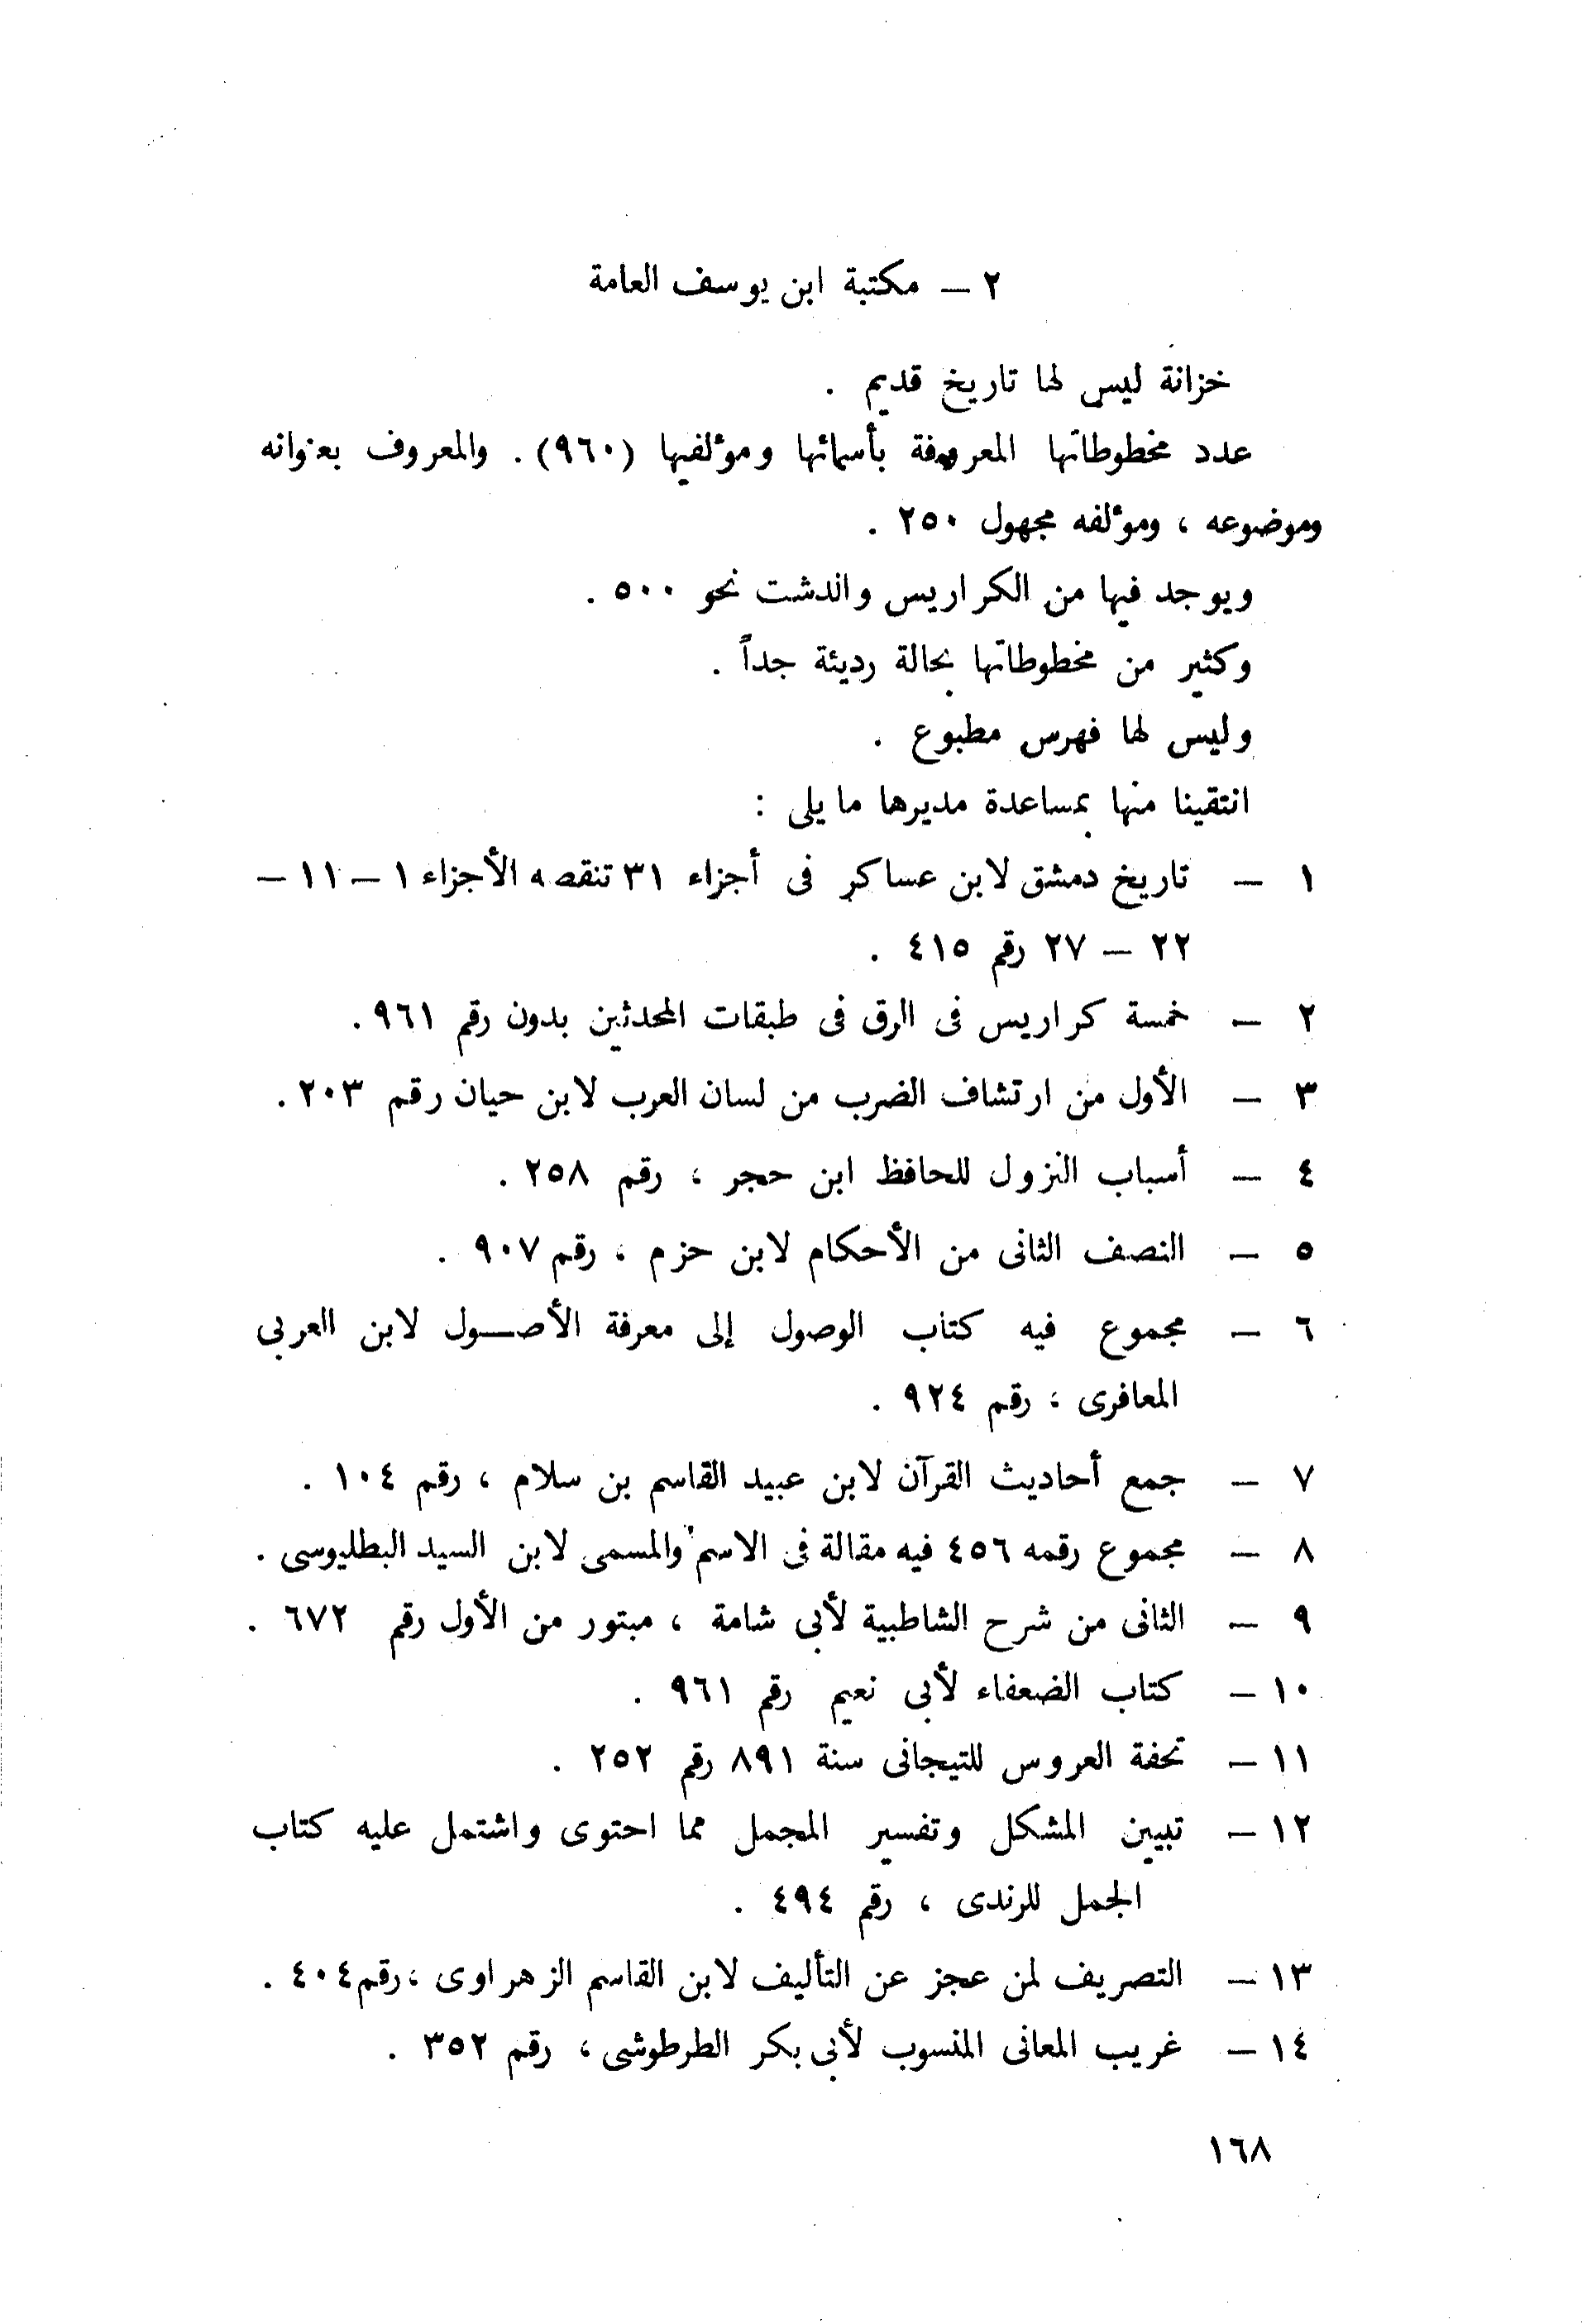 ٢ – مكتبة ابن يوسف العامة
خزانة ليس لها تاريخ قديم .
عدد مخطوطاتها المعروفة بأسمائها ومؤلفيها (٩٦٠) . والمعروف بعنوانه
وموضوعه ، ومؤلفه مجهول ٢٥٠ .
ويوجد فيها من الكراريس والدشت نحو ٥٠٠ .
وكثير من مخطوطاتها بحالة رديئة جداً .
وليس لها فهرس مطبوع .
انتقينا منها بمساعدة مديرها ما يلى :
١ – تاريخ دمشق لابن عساكر فى أجزاء ٣١ تنقصه الأجزاء ١ – ١١ –
٢٢ – ٢٧ رقم ٤١٥ .
٢ – خمسة كراريس فى الرق فى طبقات المحدثين بدون رقم ٩٦١ .
٣ – الأول من ارتشاف الضرب من لسان العرب لابن حيان رقم ٢٠٣ .
٤ – أسباب النزول للحافظ ابن حجر ، رقم ٢٥٨ .
٥ – النصف الثانى من الأحكام لابن حزم ، رقم ٩٠٧ .
٦ – مجموع فيه كتاب الوصول إلى معرفة الأصـول لابن العربى
المعافرى ، رقم ٩٢٤ .
٧ – جمع أحاديث القرآن لابن عبيد القاسم بن سلام ، رقم ١٠٤ .
٨ – مجموع رقمه ٤٥٦ فيه مقالة فى الاسم والمسمى لابن السيد البطليوسى .
٩ – الثانى من شرح الشاطبية لأبى شامة ، مبتور من الأول رقم ٦٧٢ .
١٠ – كتاب الضعفاء لأبى نعيم رقم ٩٦١ .
١١ – تحفة العروس للتيجانى سنة ٨٩١ رقم ٢٥٢ .
١٢ – تبيين المشكل وتفسير المجمل مما احتوى واشتمل عليه كتاب
الجمل للرندى ، رقم ٤٩٤ .
١٣ – التصريف لمن عجز عن التأليف لابن القاسم الزهراوى ، رقم ٤٠٤ .
١٤ – غريب المعانى المنسوب لأبى بكر الطرطوشى ، رقم ٣٥٢ .
١٦٨